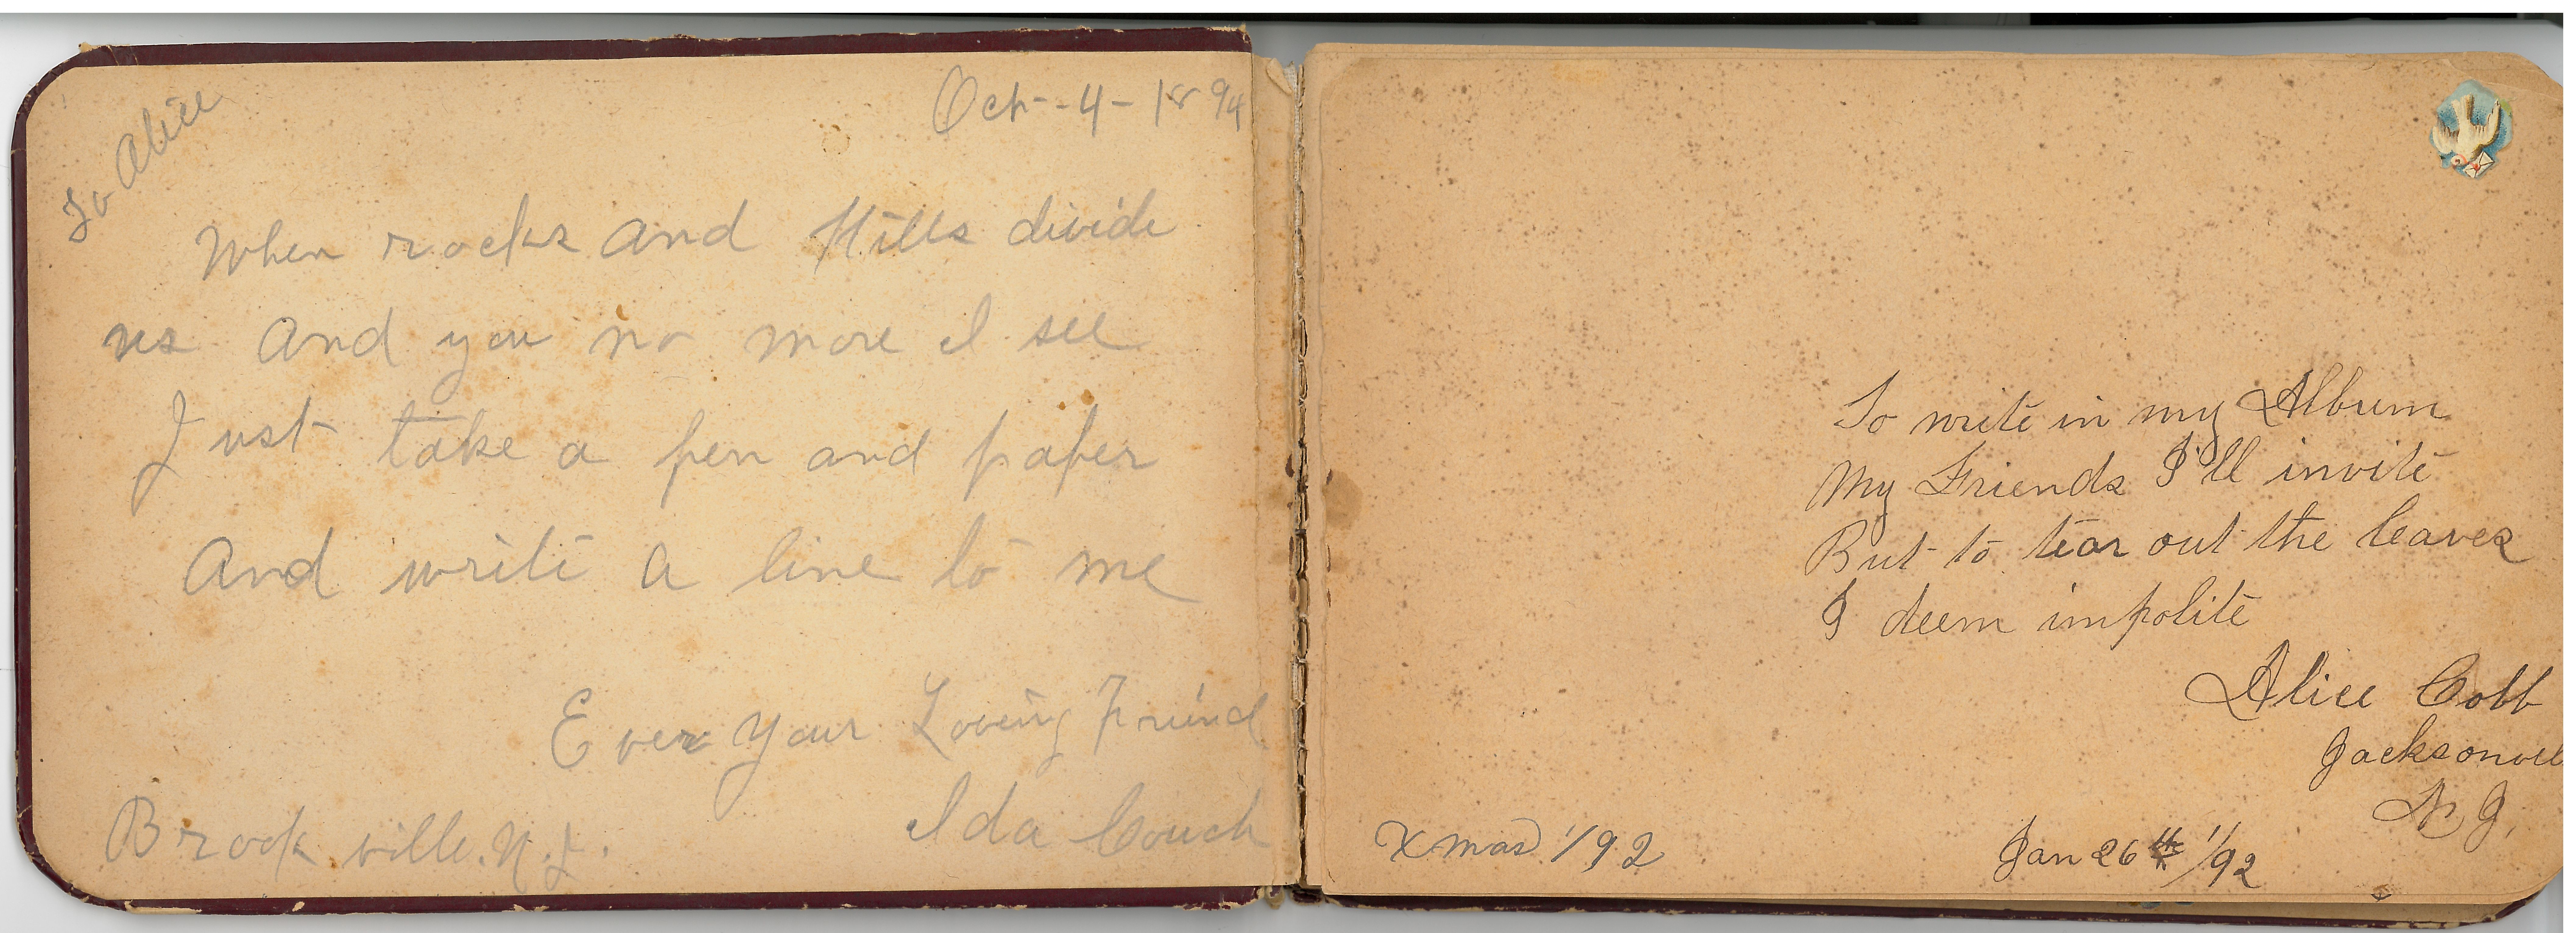 To Alice
Oct-4-1894
When rocks and Hills divide
us and you no more I see
Just take a pen and paper
And write a line to me
Ever Your Loving Friend
Ida Couch
Brookville. N.J.
To write in my Album
My Friends I'll invite
But to tear out the leaves
I deem impolite
Alice Cobb
Jacksonvil
N.J.
Xmas '/92
Jan 26th '/92